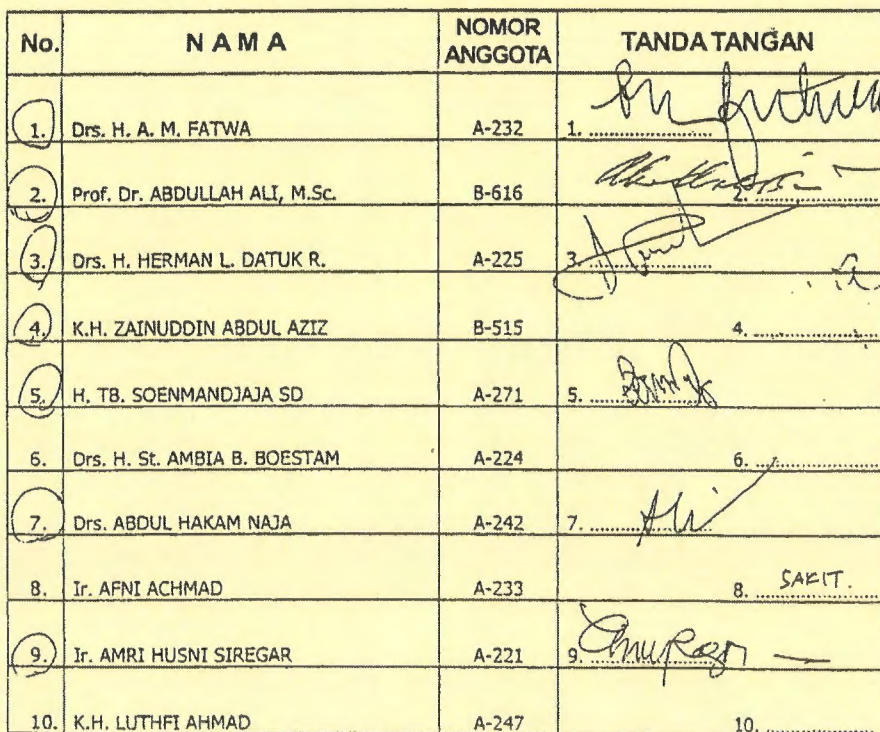 No. N A M A NOMOR ANGGOTA TANDA TANGAN
1. Drs. H. A. M. FATWA A-232 1. ....................
2. Prof. Dr. ABDULLAH ALI, M.Sc. B-616 2. ....................
3. Drs. H. HERMAN L. DATUK R. A-225 3. ....................
4. K.H. ZAINUDDIN ABDUL AZIZ B-515 4. ....................
5. H. TB. SOENMANDJAJA SD A-271 5. ....................
6. Drs. H. St. AMBIA B. BOESTAM A-224 6. ....................
7. Drs. ABDUL HAKAM NAJA A-242 7. ....................
8. Ir. AFNI ACHMAD A-233 8. SAKIT.
9. Ir. AMRI HUSNI SIREGAR A-221 9. ....................
10. K.H. LUTHFI AHMAD A-247 10. ....................